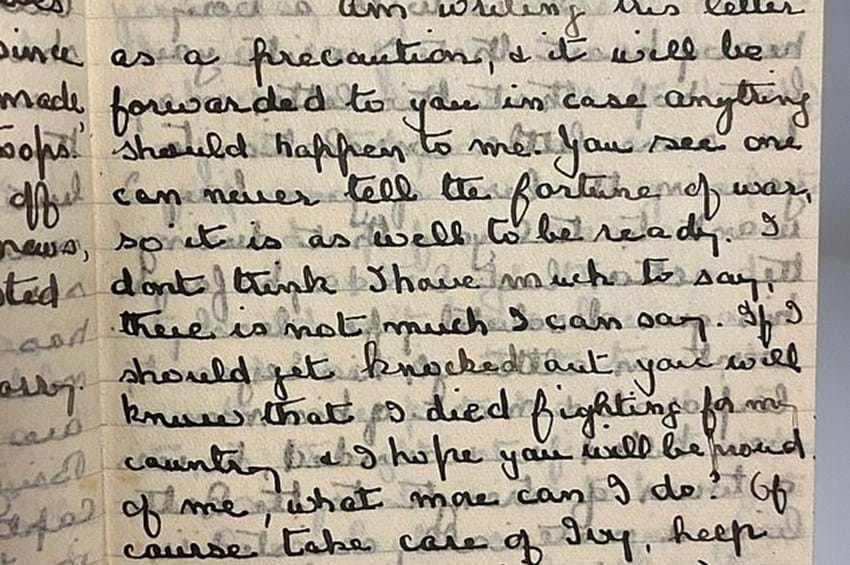 since
made
oops.'
off
news,
sted
am writing this letter
as a precaution, & it will be
forwarded to you in case anything
should happen to me. You see one
can never tell the fortune of war,
so it is as well to be ready. I
dont think I have much to say,
there is not much I can say. If I
should get knocked out you will
know that I died fighting for my
country & I hope you will be proud
of me, what more can I do? Of
course take care of Ivy, keep